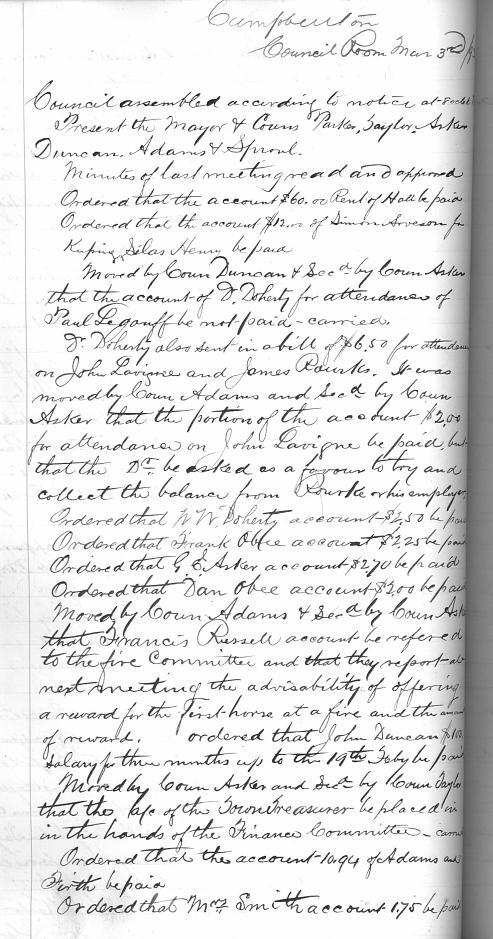 Campbellton
Council Room Mar 3rd
Council assembled according to notice at 8 oclk
Present the Mayor & Couns Parker, Taylor, Asker
Duncan, Adams & Sproul.
Minutes of last meeting read and approved
Ordered that the account $60.00 Rent of Hall be paid
Ordered that the account $12.00 of Simon Arveson for
Kuping Silas Henry be paid
Moved by Coun Duncan & Secd by Coun Asker
that the account of Dr Doherty for attendance of
Paul Legouff be not paid - carried.
Dr Doherty also sent in a bill of $6.50 for attendance
on John Lavigne and James Rourke. It was
moved by Coun Adams and Secd by Coun
Asker that the portion of the account $2.00
for attendance on John Lavigne be paid, but
that the Dr. be asked as a favour to try and
collect the balance from Rourke or his employer
Ordered that W W Doherty account $2.50 be paid
Ordered that Frank Obee account $2.25 be paid
Ordered that G. E. Asker account $2.70 be paid
Ordered that Dan Obee account $3.00 be paid
Moved by Coun Adams & Secd by Coun Asker
that Francis Russell account be refered
to the fire Committee and that they report at
next meeting the advisability of offering
a reward for the first horse at a fire and the amount
of reward. ordered that John Duncan $100
Salary for three months up to the 19th Feby be paid
Moved by Coun Asker and Secd by Coun Taylor
that the of the Town Treasurer be placed in
in the hands of the Finance Committee - carried
Ordered that the account 10.94 of Adams and
Firth be paid
Ordered that Mrs Smith account 1.75 be paid